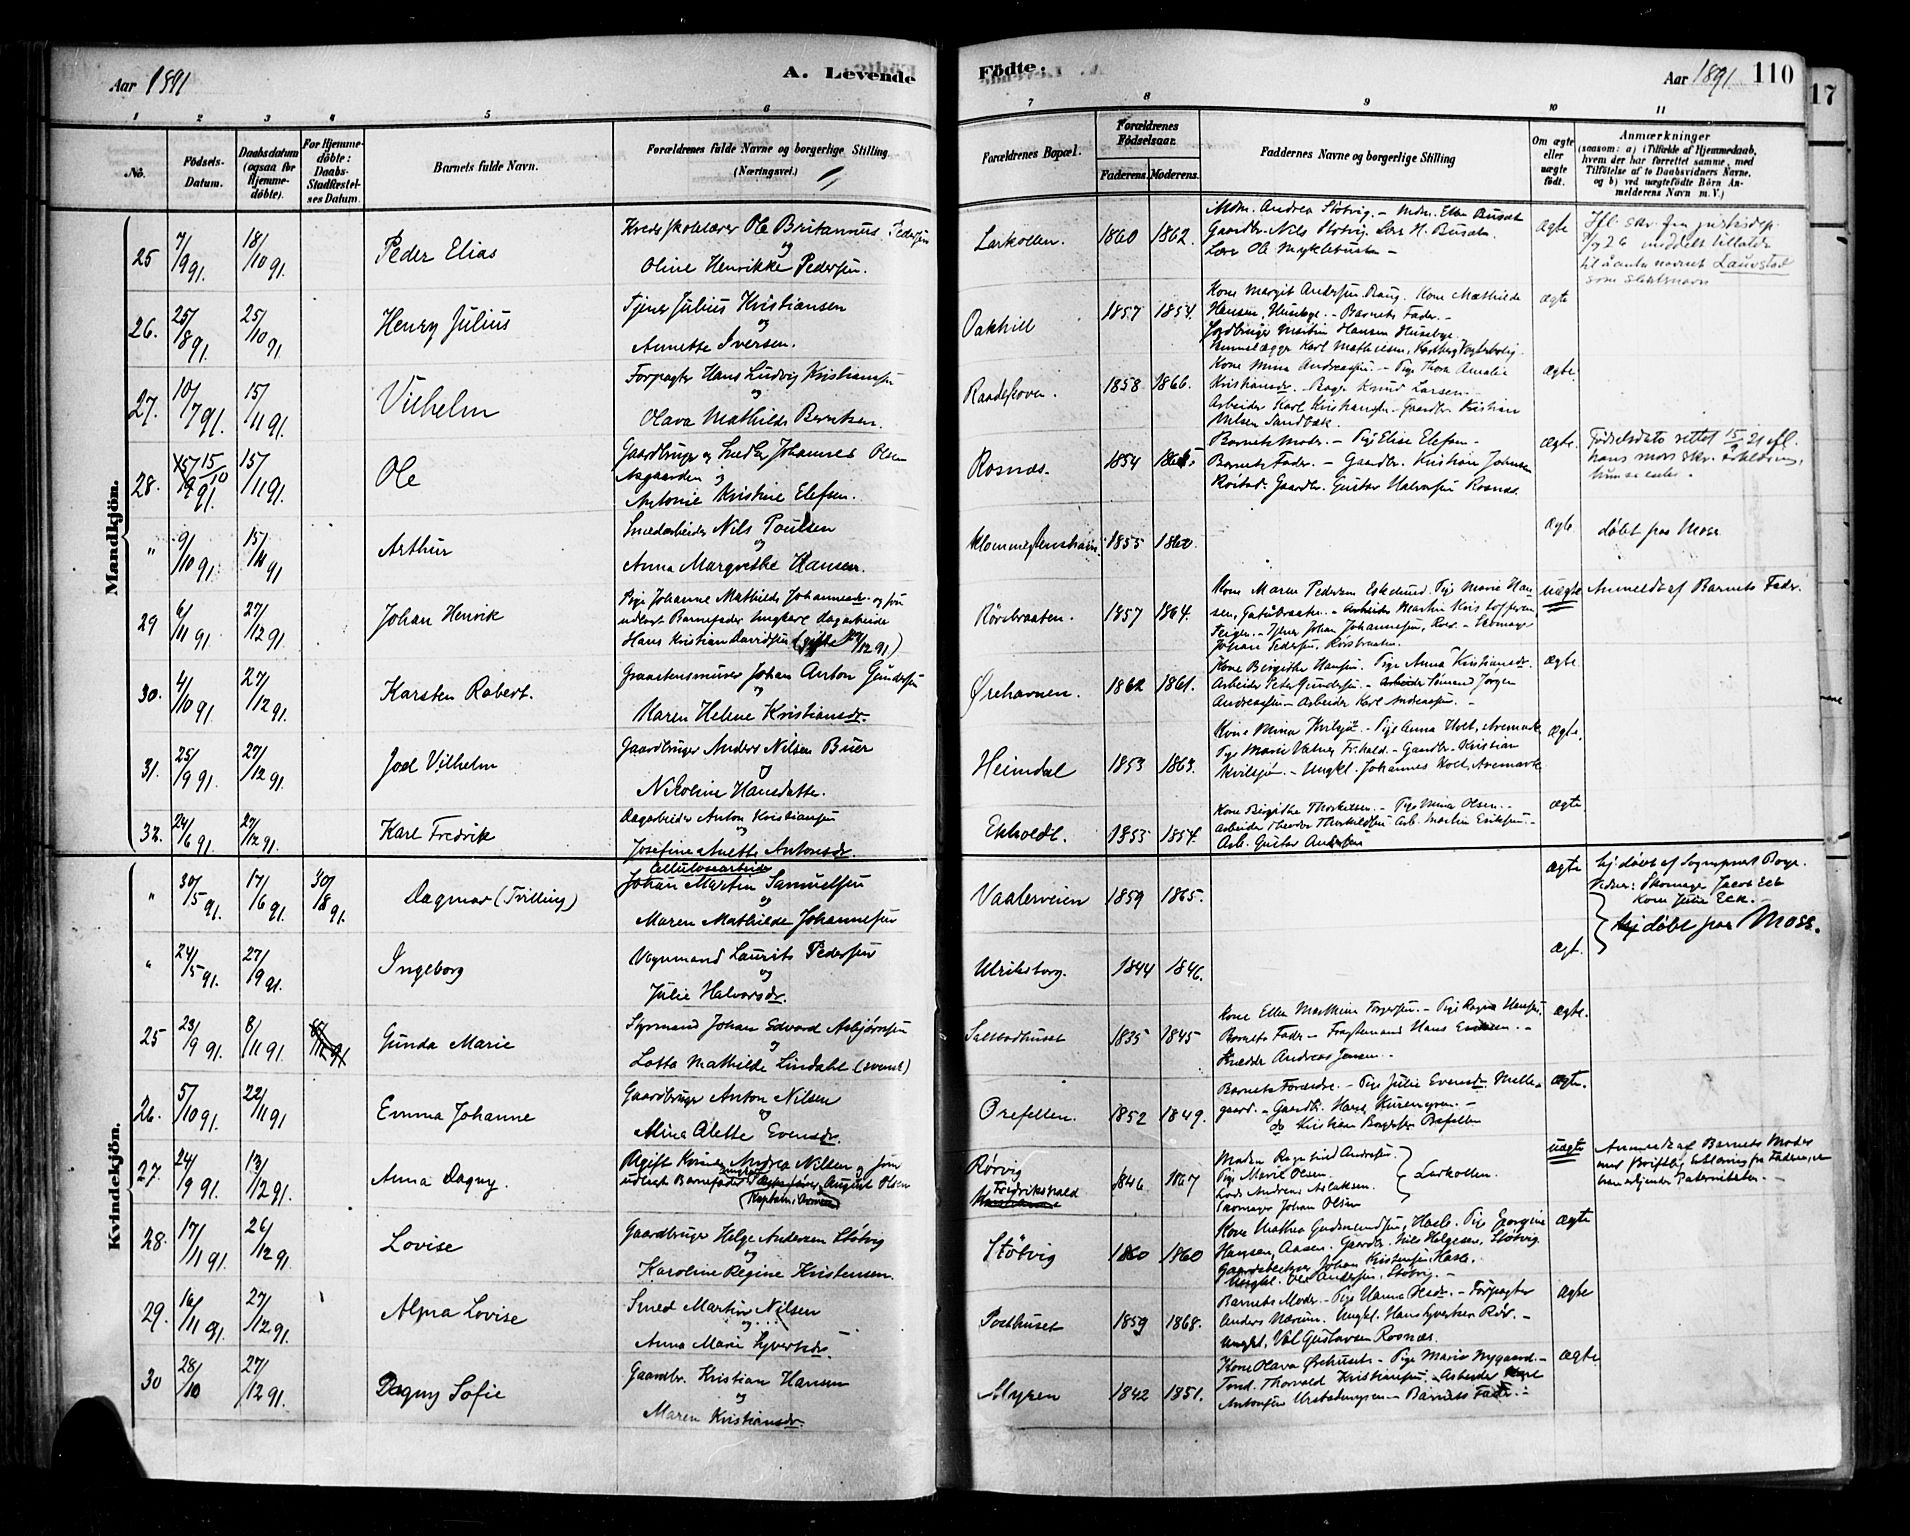 Aar 1891
A. Levende
Fødte.
Aar 1891.
110
17
1 2 3 4 5 6 7 8 9 10 11
No.
Födsels-Datum.
Daabsdatum (ogsaa for Hjemme-döbte).
For Hjemme-döbte: Daabs-Stadfæstel-ses Datum.
Barnets fulde Navn.
Forældrenes fulde Navne og borgerlige Stilling (Næringsvei.)
Forældrenes Bopæl.
Forældrenes Födselsaar.
Faderens. Moderens.
Faddernes Navne og borgerlige Stilling
Om ægte eller uægte født.
Anmærkninger
(saasom: a) i Tilfælde af Hjemmedaab, hvem der har forrettet samme, med Tilföielse af to Daabsvidners Navne, og b) ved uægtefödte Börn Anmelderens Navn m. V.)
Mandkjön.
25 7/9 91. 18/10 91. Peder Elias
Kredsskolelærer Ole Britannus Pedersen
og
Oline Henrikke Pedersen.
Larkollen. 1860 1862.
Mdm. Andrea Støtvig. - Mdm. Ellen Buseth
Gaardbr. Nils Støtvig. Lars H. Buseth.
Lars Ole Myklebusten -
ægte
Ifl. skr. fra justisdep.
26 meddelt tillatelse
til å anta navnet Lauvstad
som slektsnavn
26. 25/8 91. 25/10 91. Henry Julius
Tjener Julius Kristiansen
og
Annette Iversen.
Oakhill 1857 1854.
Kone Margit Andersen Raug. Kone Mathilde
Hansen, Husebye. - Barnets Fader. -
Jordbruger Martin Hansen Husebye.
Karl Mathisen,
ægte
27. 10/7 91. 15/11 91. Vilhelm
Forpagter Hans Ludvig Kristiansen
og
Olava Mathilde Berntsen.
Raadeskoven. 1858 1866.
Kone Mina Andreassen. - Pige Thora Amalie
Kristiansdr. Bager Knud Larsen. -
Arbeider Karl Kristiansen - Gaardbr. Kristian
Nilsen Sandbæk.
ægte.
28. 15/10 91. 15/11 91. Ole
Gaardbruger og Snedker Johannes Olsen
Aagaarden og
Antonie Kristine Elefsen.
Rosnæs. 1854 1865
Barnets Moder. - Pige Elise Elefsen -
Barnets Fader. - Gaardbr. Kristian Johansen
Röstad. Gaardbr. Gustav Halvorsen Rosnæs.
ægte.
Fødselsdato rettet 15/9 21 efl.
hans mors skr. erklæring,
" 9/10 91. 15/11 91 Arthur
Smedarbeider Nils Poulsen
og
Anna Margrethe Hansen.
1855 1860.
ægte.
döbt paa Moss.
29 6/11 91. 27/12 91. Johan Henrik
Pige Johanne Mathilde Johannesdr. og som
udlagt Barnefader Ungkarl Dagarbeider
Hans Kristian Davidsen (gifte 12 91)
Rörsbraaten. 1857 1864.
Kone Maren Pedersen Eskelund. Pige Marie Han-
sen, - Arbeider Martin Kristoffersen
- Tjener Johan Johannesen, - Skomager
Johan Pedersen, Rörsbraaten.
uægte
Anmeldt af Barnets Fader.
30. 4/10 91. 27/12 91. Karsten Robert.
Graastensmurer Johan Anton Gundersen
og
Karen Helene Kristiansdr.
Ørehavnen. 1862 1861.
Kone Birgithe Hansen. Pige Anna Kristiansdr.
Arbeider Peter Gundersen - Sömand Jörgen
Andreassen - Arbeider Karl Andreassen. -
ægte.
31. 25/9 91. 27/12 91. Joel Vilhelm
Gaardbruger Anders Nilsen Buer
og
Nikoline Hansdatter.
Heimdal 1853 1863.
Kone Mina Kvilsjö - Pige Anna Holt, Aremark
Pige Marie Vatner Fr.hald. - Gaardbr. Kristian
Kvilsjö. - Ungkl. Johannes Holt, Aremark
ægte,
32. 24/6 91. 27/12 91. Karl Fredrik
Dagarbeider Anton Kristiansen
og
Josefine Anette Antonsdr.
Ekholdt. 1855 1854.
Kone Birgithe Thorkelsen. - Pige Mina Olsen. -
Arbeider Theodor Thorkildsen Arb. Martin Eriksen. -
Arb. Gustav Andersen
ægte
Kvindekjön.
" 30/5 91. 17/6 91. 30/8 91. Dagmar (Tvilling)
Cellulosearbeider
Johan Martin Samuelsen
og
Maren Mathilde Johannesen
Vaalerveien 1859 1865.
ægte
hj. döbt af Sognepræst Boye.
Vidner: Skomager Jacob Eck
Kone Julie Eck.
döbt paa Moss.
" 24/5 91. 27/9 91. Ingeborg
Vognmand Laurits Pedersen
og
Julie Halvorsdr.
Ulriksborg. 1844 1846.
ægt.
25 23/9 91. 8/11 91. Gunda Marie
Styrmand Johan Edvard Asbjørnsen
og
Lotta Mathilde Lindahl (svensk)
Saltbodhuset 1835 1845
Kone Ellen Mathine Torgersen. - Pige Ragna Hansen,
Barnets Fader - Fragtemand Hans Eriksen. -
Snedker Andreas Jensen. -
ægte.
26. 5/10 91. 22/11 91 Emma Johanne
Gaardbruger Anton Nilsen
og
Alina Alette Evensdr.
Orefellen. 1852 1849.
Barnets Forældre. - Pige Julie Evensdr. Mella
gaard. - Gaardbr. Hans Kurengren. -
do Kristian
ægte.
27. 24/9 91. 13/12 91. Anna Dagny.
Ugift Kvinde Andrea Nilsen og som
udlagt Barnefader August Olsen
Rörvig
Fredrikshald
1846 1867
Maden Ragnhild Andersen
Pige Marie Olsen
Lods Andreas Aslaksen.
Skomager Johan Olsen
Larkollen.
uægte
Anmeldt af Barnets Moder
med skriftlig Erklæring fra Faderen, at
han erkjender Paterniteten. -
28. 17/11 91. 26/12 91. Lovise
Gaardbruger Helge Andersen Støtvig
og
Karoline Regine Kristensen.
Støtvig 1860 1860
Kone Mathea Gudmundsen, Hasle. Pige Georgine
Hansen, Aasen. Gaardbr. Nils Helgesen, Støtvig.
Gaardbestyrer Johan Kristensen, Hasle.
Ungkl. Ole Andersen, Støtvig. -
ægte
29. 16/11 91. 27/12 91. Alma Lovise
Smed Martin Nilsen
og
Anna Marie Syvertsdr.
Posthuset 1859 1868.
Barnets Moder. - Pige Hanna Olsdr. - Forpagter
Anders Nærum. Ungkl. Hans Syvertsen Rör. -
Ungkl. Val. Gustavsen Rosnæs.
ægte
30 28/10 27/12 91. Dagny Sofie
Gaardbr. Kristian Hansen
og
Maren Kristiansdr.
Myren 1842 1851.
Kone Olava Örehuset - Pige Marie Nygaard. -
Tønd. Thorvald Kristiansen. - Arbeider
Antonsen - Barnets Fader. -
ægte